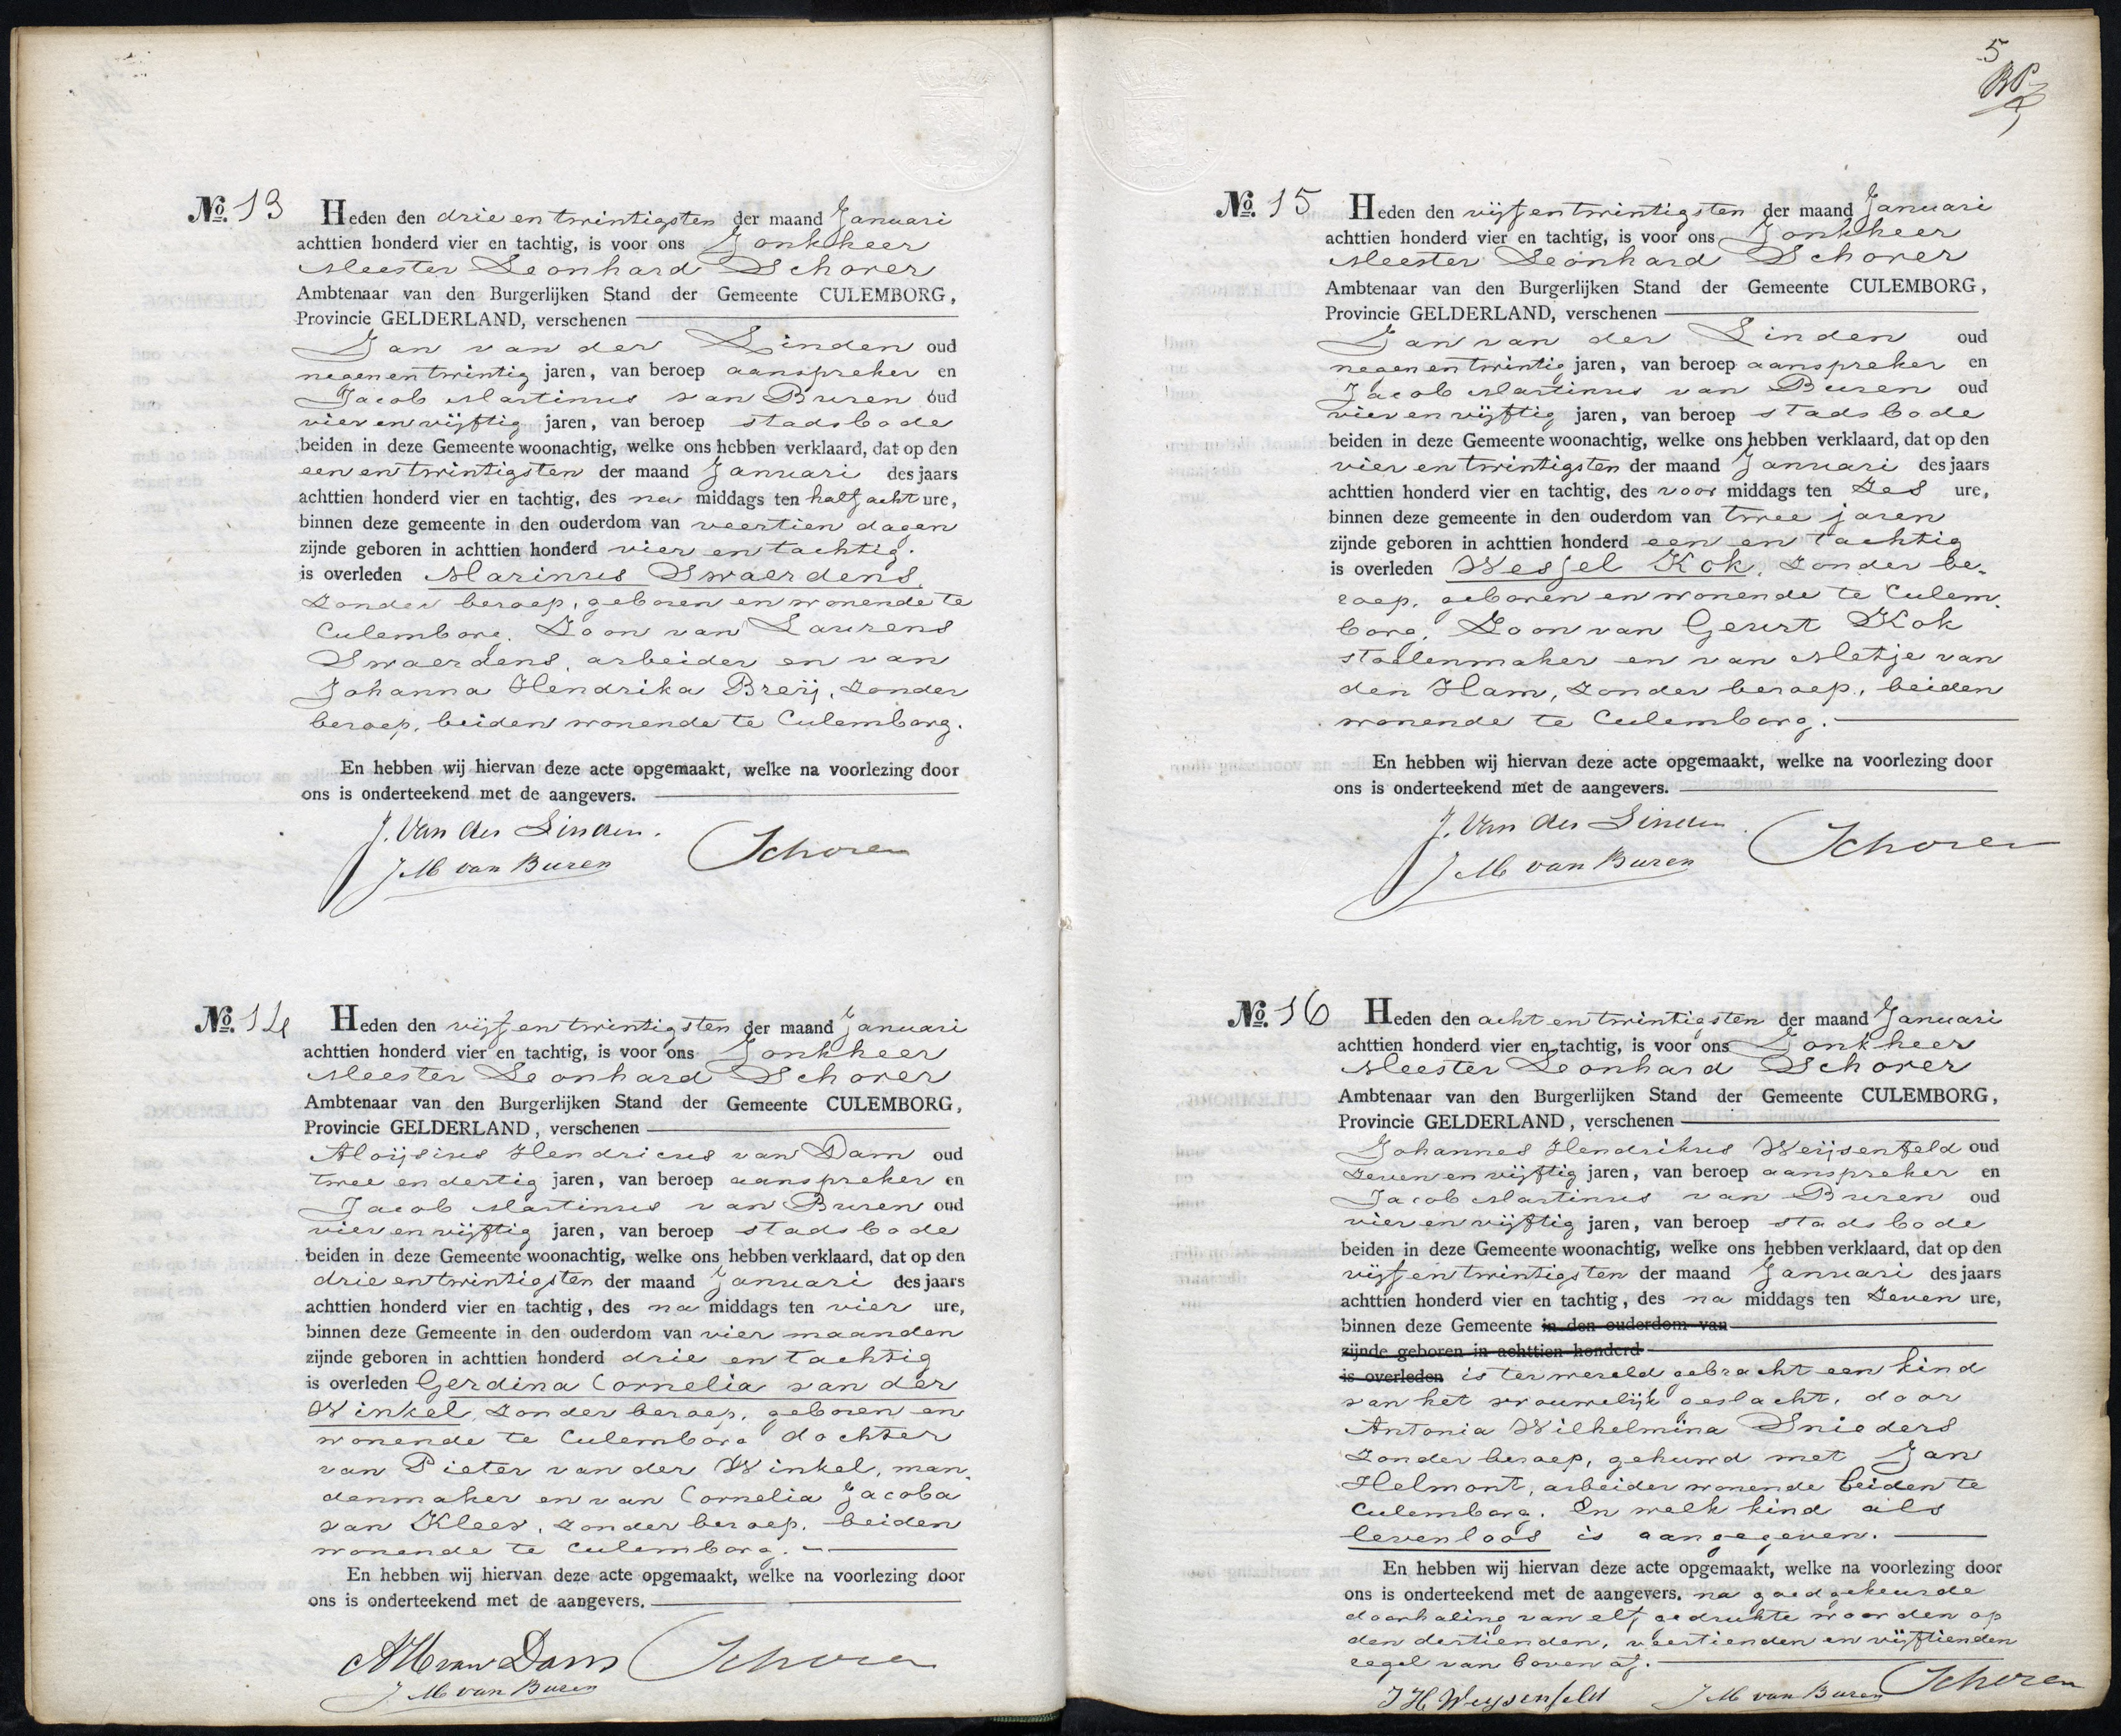 No. 13 Heden den drie en twintigsten der maand Januari
achttien honderd vier en tachtig, is voor ons Jonkheer
Meester Leonhard Schorer
Ambtenaar van den Burgerlijken Stand der Gemeente CULEMBORG,
Provincie GELDERLAND, verschenen
Jan van der Linden oud
negenentwintig jaren, van beroep aanspreker en
Jacob Martinus van Buren oud
vier en vijftig jaren, van beroep stadsbode
beiden in deze Gemeente woonachtig, welke ons hebben verklaard, dat op den
een en twintigsten der maand Januari des jaars
achttien honderd vier en tachtig, des na middags ten half acht ure,
binnen deze gemeente in den ouderdom van veertien dagen
zijnde geboren in achttien honderd vier en tachtig.
is overleden Marinus Swaerdens,
zonder beroep, geboren en wonende te
Culemborg. Zoon van Laurens
Swaerdens, arbeider en van
Johanna Hendrika Breij, zonder
beroep, beiden wonende te Culemborg.
En hebben wij hiervan deze acte opgemaakt, welke na voorlezing door
ons is onderteekend met de aangevers.
J. Van der Linden.
J M van Buren Schorer
No. 14 Heden den vijf en twintigsten der maand Januari
achttien honderd vier en tachtig, is voor ons Jonkheer
Meester Leonhard Schorer
Ambtenaar van den Burgerlijken Stand der Gemeente CULEMBORG,
Provincie GELDERLAND, verschenen
Aloijsius Hendricus van Dam oud
twee en dertig jaren, van beroep aanspreker en
Jacob Martinus van Buren oud
vier en vijftig jaren, van beroep stadsbode
beiden in deze Gemeente woonachtig, welke ons hebben verklaard, dat op den
drie entwintigsten der maand Januari des jaars
achttien honderd vier en tachtig, des na middags ten vier ure,
binnen deze Gemeente in den ouderdom van vier maanden
zijnde geboren in achttien honderd drie en tachtig
is overleden Gerdina Cornelia van der
Winkel, zonder beroep, geboren en
wonende te Culemborg dochter
van Pieter van der Winkel, man-
denmaker en van Cornelia Jacoba
van Kleef, zonder beroep, beiden
wonende te Culemborg.
En hebben wij hiervan deze acte opgemaakt, welke na voorlezing door
ons is onderteekend met de aangevers.
AH van Dam Schorer
J M van Buren
5
No. 15 Heden den vijf en twintigsten der maand Januari
achttien honderd vier en tachtig, is voor ons Jonkheer
Meester Leonhard Schorer
Ambtenaar van den Burgerlijken Stand der Gemeente CULEMBORG,
Provincie GELDERLAND, verschenen
Jan van der Linden oud
negen en twintig jaren, van beroep aanspreker en
Jacob Martinus van Buren oud
vier en vijftig jaren, van beroep stadsbode
beiden in deze Gemeente woonachtig, welke ons hebben verklaard, dat op den
vier en twintigsten der maand Januari des jaars
achttien honderd vier en tachtig, des voor middags ten zes ure,
binnen deze gemeente in den ouderdom van twee jaren
zijnde geboren in achttien honderd een en tachtig
is overleden Wessel Kok, zonder be-
roep, geboren en wonende te Culem-
borg, Zoon van Geurt Kok
stoelenmaker en van Metje van
den Ham, zonder beroep, beiden
wonende te Culemborg.
En hebben wij hiervan deze acte opgemaakt, welke na voorlezing door
ons is onderteekend met de aangevers.
J. Van der Linden.
J M van Buren Schorer
No. 16 Heden den acht en twintigsten der maand Januari
achttien honderd vier en tachtig, is voor ons Jonkheer
Meester Leonhard Schorer
Ambtenaar van den Burgerlijken Stand der Gemeente CULEMBORG,
Provincie GELDERLAND, verschenen
Johannes Hendrikus Weijsenfeld oud
zeven en vijftig jaren, van beroep aanspreker en
Jacob Martinus van Buren oud
vier en vijftig jaren, van beroep stadsbode
beiden in deze Gemeente woonachtig, welke ons hebben verklaard, dat op den
vijf en twintigsten der maand Januari des jaars
achttien honderd vier en tachtig, des na middags ten zeven ure,
binnen deze Gemeente in den ouderdom van
zijnde geboren in achttien honderd
is overleden is ter wereld gebracht een kind
van het vrouwelijk geslacht, door
Antonia Wilhelmina Snieders
zonder beroep, gehuwd met Jan
Helmont, arbeider wonende beiden te
Culemborg. En welk kind als
levenloos is aangegeven.
En hebben wij hiervan deze acte opgemaakt, welke na voorlezing door
ons is onderteekend met de aangevers. na goedgekeurde
doorhaling van elf gedrukte woorden op
den dertienden, veertienden en vijftienden
regel van boven af.
J H Weijsenfeld J M van Buren Schorer